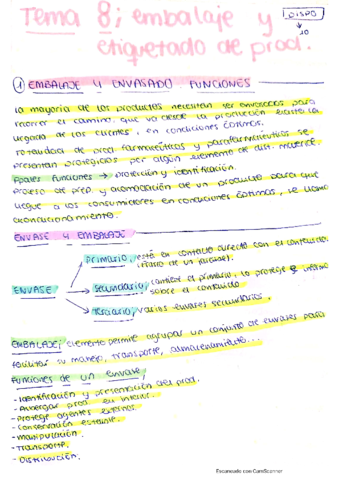 Tema 8; embalaje y
etiquetado de prod.
DISPO
10
1 EMBALAJE Y ENVASADO: FUNCIONES
La mayoría de los productos necesitan ser envasados para
recorrer el camino, que va desde la producción hasta la
llegada de los clientes, en condiciones óptimas.
prod farmacéuticos y parafarmacéuticos se
presentan protegidos por algún elemento de
funciones → protección y identificación.
Proceso de prep. y acomodación de un producto para que
llegue a los consumidores en condiciones óptimas, se llama
acondicionamiento.
ENVASE Y EMBALAJE
primario, está en contacto directo con el contenido.
(frasco de un jarabe).
ENVASE
secundario, contiene al primario, lo protege e informa
sobre el contenido
Terciario, varios envases secundarios.
EMBALAJE; elemento permite agrupar un conjunto de envases para
facilitar su manejo, transporte, almacenamiento...
Funciones de un envase;
- Identificación y presentación del prod.
- Albergar prod. en interior.
- Protege agentes externos.
- Conservación estable.
- Manipulación.
- Transporte.
- Distribución.
Escaneado con CamScanner